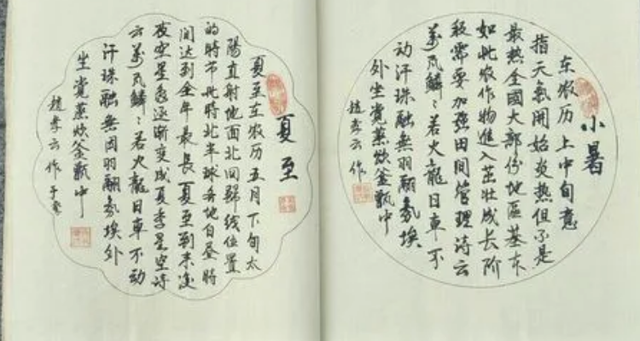 小暑
在农历上中旬意
指天氣開始炎热但不是
最热全國大部份地區基本
如此农作物進入茁壮成长阶
段需要加强田间管理诗云
萬瓦鳞〻若火龍日車不
动汗珠融無羽翮氛埃
外坐覺蒸炊釜甑中
趙孝云作
夏至
夏至在农历五月下旬太
陽直射地面北回歸线位置
的時节此時北半球各地白昼時
间达到全年最長夏至到来後
夜空星象逐渐变成夏季星空诗
云萬瓦鳞〻若火龍日車不动
汗珠融無因羽翮氛埃外
坐覺蒸炊釜甑中
趙孝云作于